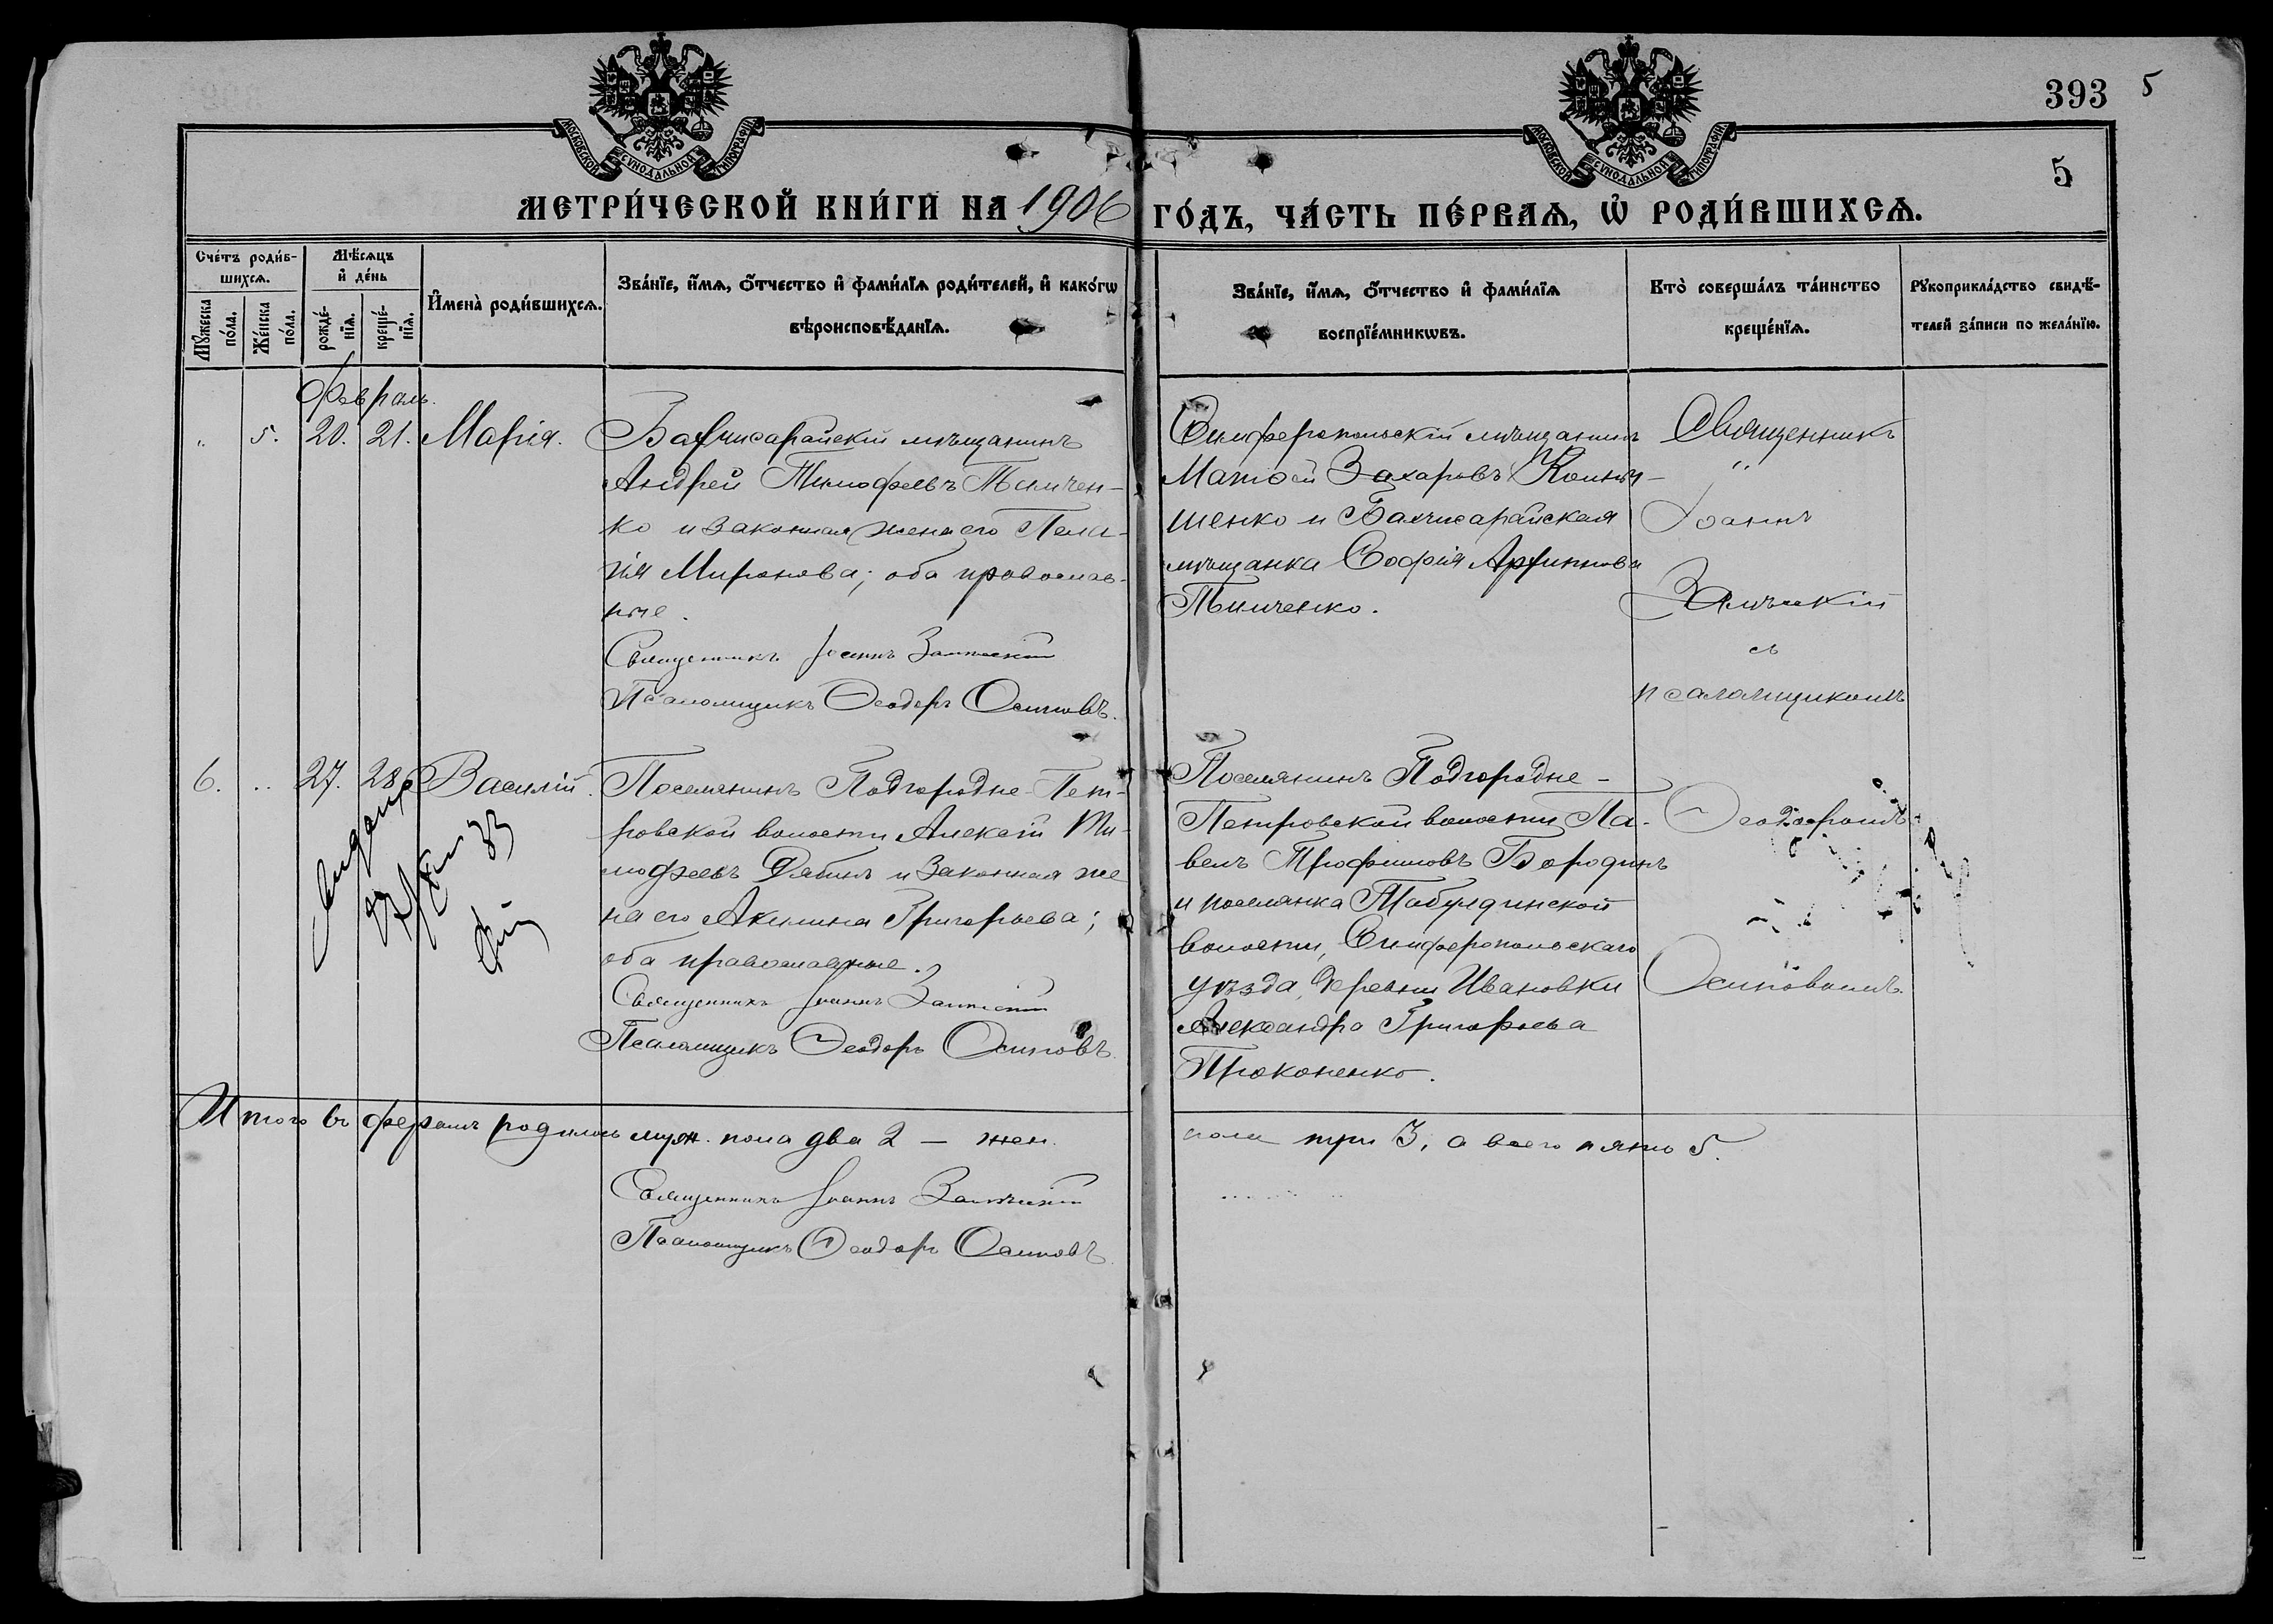 393 5
МОСКОВСКОЙ СѴНОДАЛЬНОЙ ТИПОГРАФІИ
МОСКОВСКОЙ СѴНОДАЛЬНОЙ ТИПОГРАФІИ
5
МЕТРИ́ЧЕСКОЙ КНИ́ГИ НА 1906 ГО́ДЪ, ЧА́СТЬ ПЕ́РВАѦ, Ѡ҆ РОДИ́ВШИХСѦ.
Сче́тъ роди́в-
шихсѧ.
Мꙋ́жеска по́ла.
Же́нска по́ла.
Мѣ́сѧцъ
и҆ де́нь
рожде́-нїѧ.
креще́-нїѧ.
И҆мена̀ роди́вшихсѧ.
Зва́нїе, и҆́мѧ, ѻ҆́тчество и҆ фами́лїѧ роди́телей, и҆ како́гѡ
вѣроисповѣ́данїѧ.
Зва́нїе, и҆́мѧ, ѻ҆́тчество и҆ фами́лїѧ
воспрїе́мникѡвъ.
Кто̀ соверша́лъ та́инство
креще́нїѧ.
Рꙋкоприкла́дство свидѣ́-
телей за́писи по жела́нїю.
Февраль.
" 5. 20. 21. Марія.
Бахчисарайскій мѣщанинъ
Андрей Тимофеевъ
ко и законная жена его Пела-
гія Миронова; оба православ-
ные.
Священникъ Іоаннъ
Псаломщикъ Ѳеодоръ Осиповъ.
Симферопольскій мѣщанинъ
Матѳей Захаровъ
шенко и Бахчисарайская
мѣщанка Софія Архиппова
Священникъ
"
Іоаннъ
съ
псаломщикомъ
6. .. 27. 28. Василій.
Поселянинъ Подгородне-Пет-
ровской волости Алексій Ти-
мофеевъ и законная же
на его Акилина Григорьева;
оба православные.
Священникъ Іоаннъ
Псаломщикъ Ѳеодоръ Осиповъ.
Поселянинъ Подгородне-
Петровской волости Па-
велъ Трофимовъ Бородинъ
и поселянка Табулдинской
волости, Симферопольскаго
уѣзда, деревни Ивановки
Александра Григорьева
Прокопенко.
Ѳеодоромъ
Осиповымъ.
Итого въ февралѣ родилось муж. пола два 2 — жен. пола три 3, а всего пять 5.
Священникъ Іоаннъ
Псаломщикъ Ѳеодоръ Осиповъ